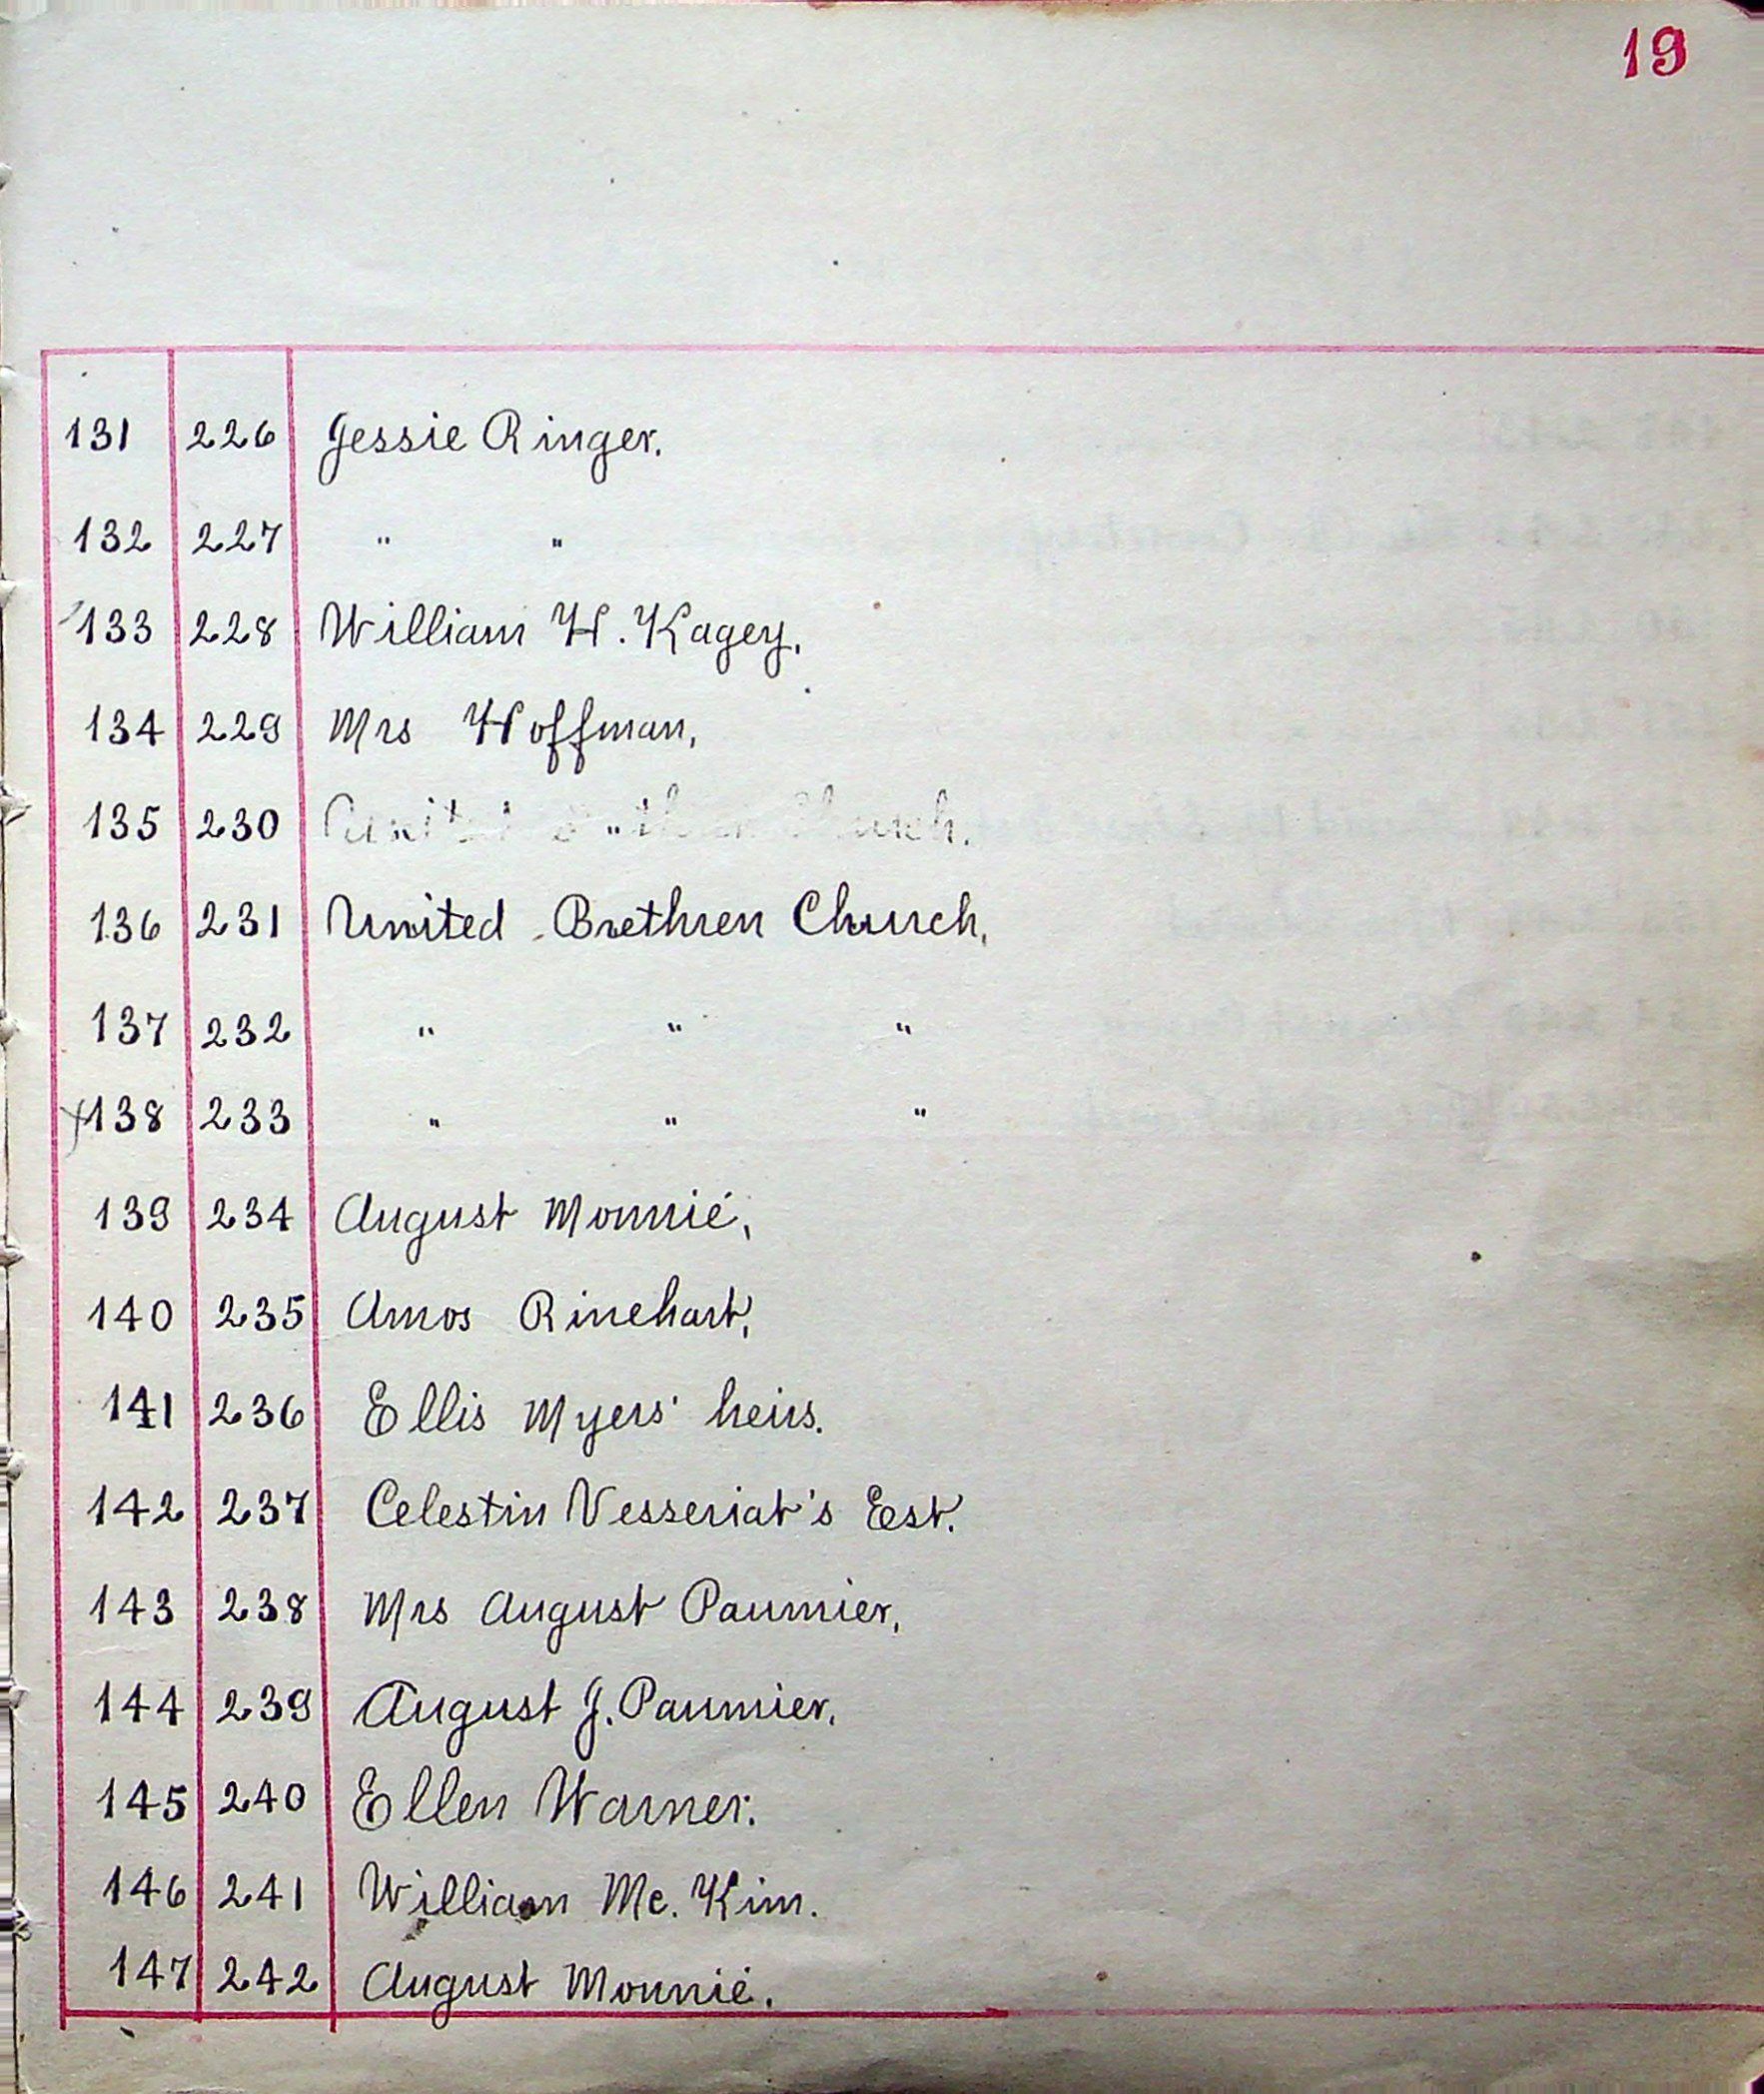 19
131 226 Jessie Ringer.
132 227 " "
133 228 William H. Kagey,
134 229 Mrs Hoffman,
135 230 Church.
136 231 United Brethren Church,
137 232 " " "
138 233 " " "
139 234 August Monnié,
140 235 Amos Rinehart,
141 236 Ellis Myers' heirs.
142 237 Celestin Vesseriat's Est.
143 238 Mrs August Paumier,
144 239 August J. Paumier,
145 240 Ellen Warner.
146 241 William Mc. Kim.
147 242 August Monnié.